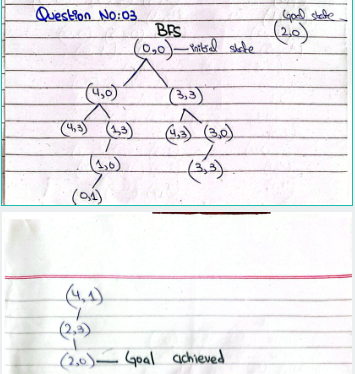 Question No:03
Goal state
BFS
(2,0)
(0,0) — initial state
(4,0) (3,3)
(4,3) (1,3) (4,3) (3,0)
(1,0) (3,3)
(0,1)
(4,1)
(2,3)
(2,0) — Goal achieved